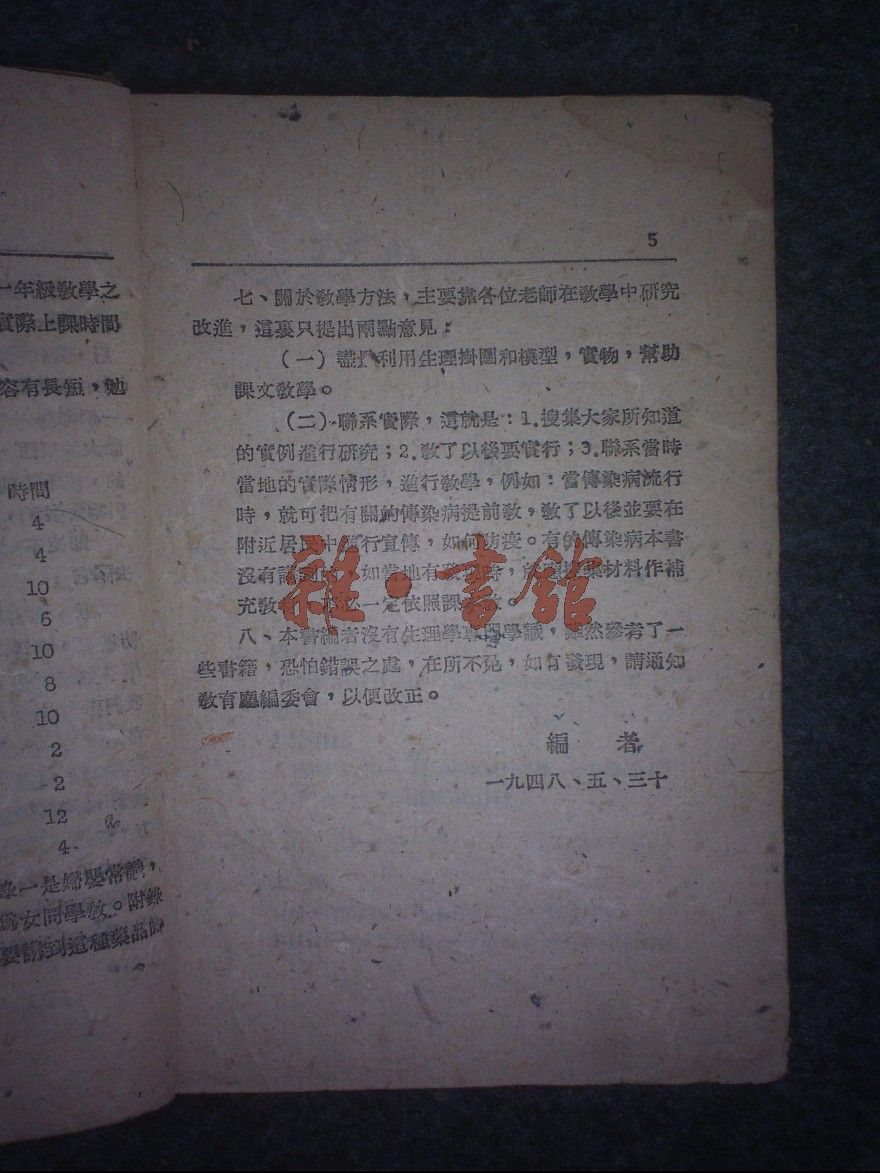 一年級敎學之
實際上課時間
容有長短，勉
時間
4
4
10
6
10
8
10
2
2
12
4
錄一是婦嬰常識，
爲女同學敎。附錄
要講到這種藥品時
5
七、關於敎學方法，主要靠各位老師在敎學中研究
改進，這裏只提出兩點意見：
（一）盡量利用生理掛圖和模型，實物，幫助
課文敎學。
（二）聯系實際，這就是：1.搜集大家所知道
的實例進行研究；2.敎了以後要實行；3.聯系當時
當地的實際情形，進行敎學，例如：當傳染病流行
時，就可把有關的傳染病提前敎，敎了以後並要在
附近居民中進行宣傳，如何防疫。有的傳染病本書
沒有講到的，如當地有發現時，搜集材料作補
充敎材，不必一定依照課
八、本書編者沒有生理學專門學識，雖然參考了一
些書籍，恐怕錯誤之處，在所不免，如有發現，請通知
敎育廳編委會，以便改正。
編 者
一九四八、五、三十
雜·書館